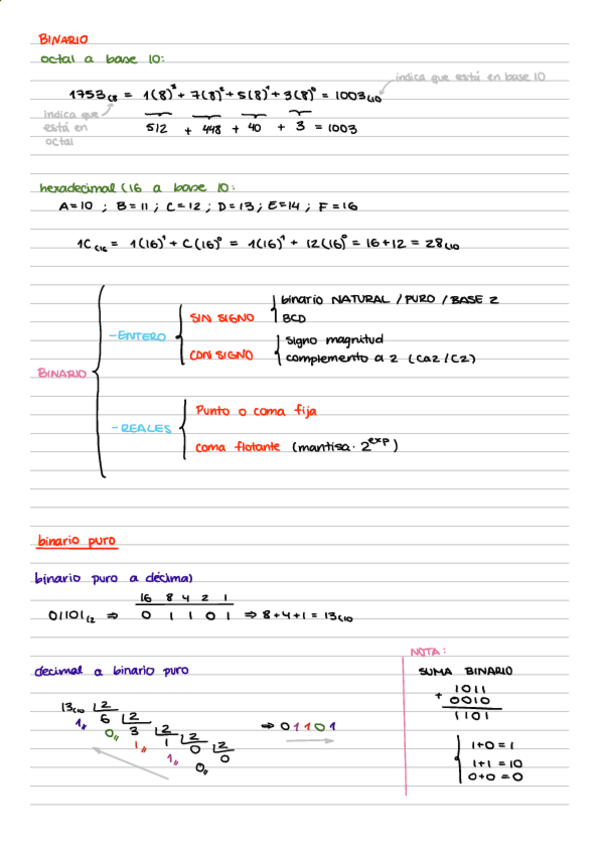 BINARIO
octal a base 10:
indica que está en base 10
1753(8 = 1(8)³ + 7(8)² + 5(8)¹ + 3(8)⁰ = 1003(10
indica que
está en
octal
512 + 448 + 40 + 3 = 1003
hexadecimal (16 a base 10:
A=10 ; B=11 ; C=12 ; D=13 ; E=14 ; F=16
1C(16 = 1(16)¹ + C(16)⁰ = 1(16)¹ + 12(16)⁰ = 16+12 = 28(10
BINARIO
-ENTERO
SIN SIGNO
binario NATURAL / PURO / BASE 2
BCD
CON SIGNO
signo magnitud
complemento a 2 (CA2/C2)
-REALES
Punto o coma fija
coma flotante (mantisa · 2^exp)
binario puro
binario puro a décimal
16 8 4 2 1
01101(2 ⇒ 0 1 1 0 1 ⇒ 8+4+1 = 13(10
decimal a binario puro
13(10 2
1,, 6 2
0,, 3 2
1,, 1 2
1,, 0 2
0,, 0
⇒ 01101
NOTA:
SUMA BINARIO
1011
+ 0010
1101
1+0 = 1
1+1 = 10
0+0 = 0